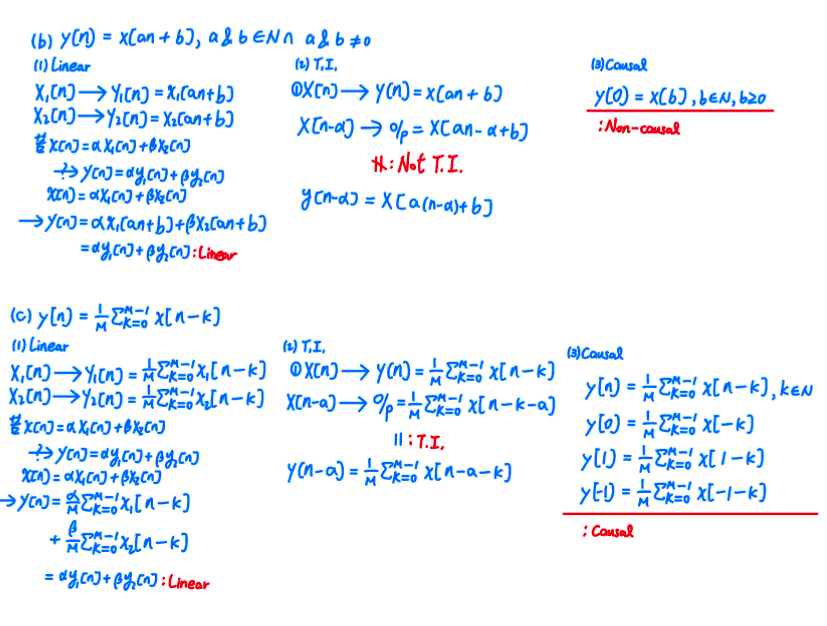 (b) y[n] = x[an + b], a & b ∈ N ∩ a & b ≠ 0
(1) Linear
X₁[n] → Y₁[n] = X₁[an+b]
X₂[n] → Y₂[n] = X₂[an+b]
X[n] = αX₁[n] + βX₂[n]
?→ y[n] = αy₁[n] + βy₂[n]
X[n] = αX₁[n] + βX₂[n]
→ y[n] = αX₁[an+b] + βX₂[an+b]
= αy₁[n] + βy₂[n] : Linear
(2) T.I.
① X[n] → y[n] = x[an + b]
X[n-α] → o/p = X[an - α + b]
≠ : Not T.I.
y[n-α] = X[a(n-α)+b]
(3) Causal
y[0] = x[b], b∈N, b≥0
: Non-causal
(c) y[n] = 1/M ∑ᴹ⁻¹ₖ₌₀ x[n-k]
(1) Linear
X₁[n] → Y₁[n] = 1/M ∑ᴹ⁻¹ₖ₌₀ X₁[n-k]
X₂[n] → Y₂[n] = 1/M ∑ᴹ⁻¹ₖ₌₀ X₂[n-k]
X[n] = αX₁[n] + βX₂[n]
?→ y[n] = αy₁[n] + βy₂[n]
X[n] = αX₁[n] + βX₂[n]
→ y[n] = α/M ∑ᴹ⁻¹ₖ₌₀ X₁[n-k]
+ β/M ∑ᴹ⁻¹ₖ₌₀ X₂[n-k]
= αy₁[n] + βy₂[n] : Linear
(2) T.I.
① X[n] → y[n] = 1/M ∑ᴹ⁻¹ₖ₌₀ x[n-k]
X[n-a] → o/p = 1/M ∑ᴹ⁻¹ₖ₌₀ x[n-k-a]
|| : T.I.
y[n-a] = 1/M ∑ᴹ⁻¹ₖ₌₀ x[n-a-k]
(3) Causal
y[n] = 1/M ∑ᴹ⁻¹ₖ₌₀ x[n-k], k∈N
y[0] = 1/M ∑ᴹ⁻¹ₖ₌₀ x[-k]
y[1] = 1/M ∑ᴹ⁻¹ₖ₌₀ x[1-k]
y[-1] = 1/M ∑ᴹ⁻¹ₖ₌₀ x[-1-k]
: Causal